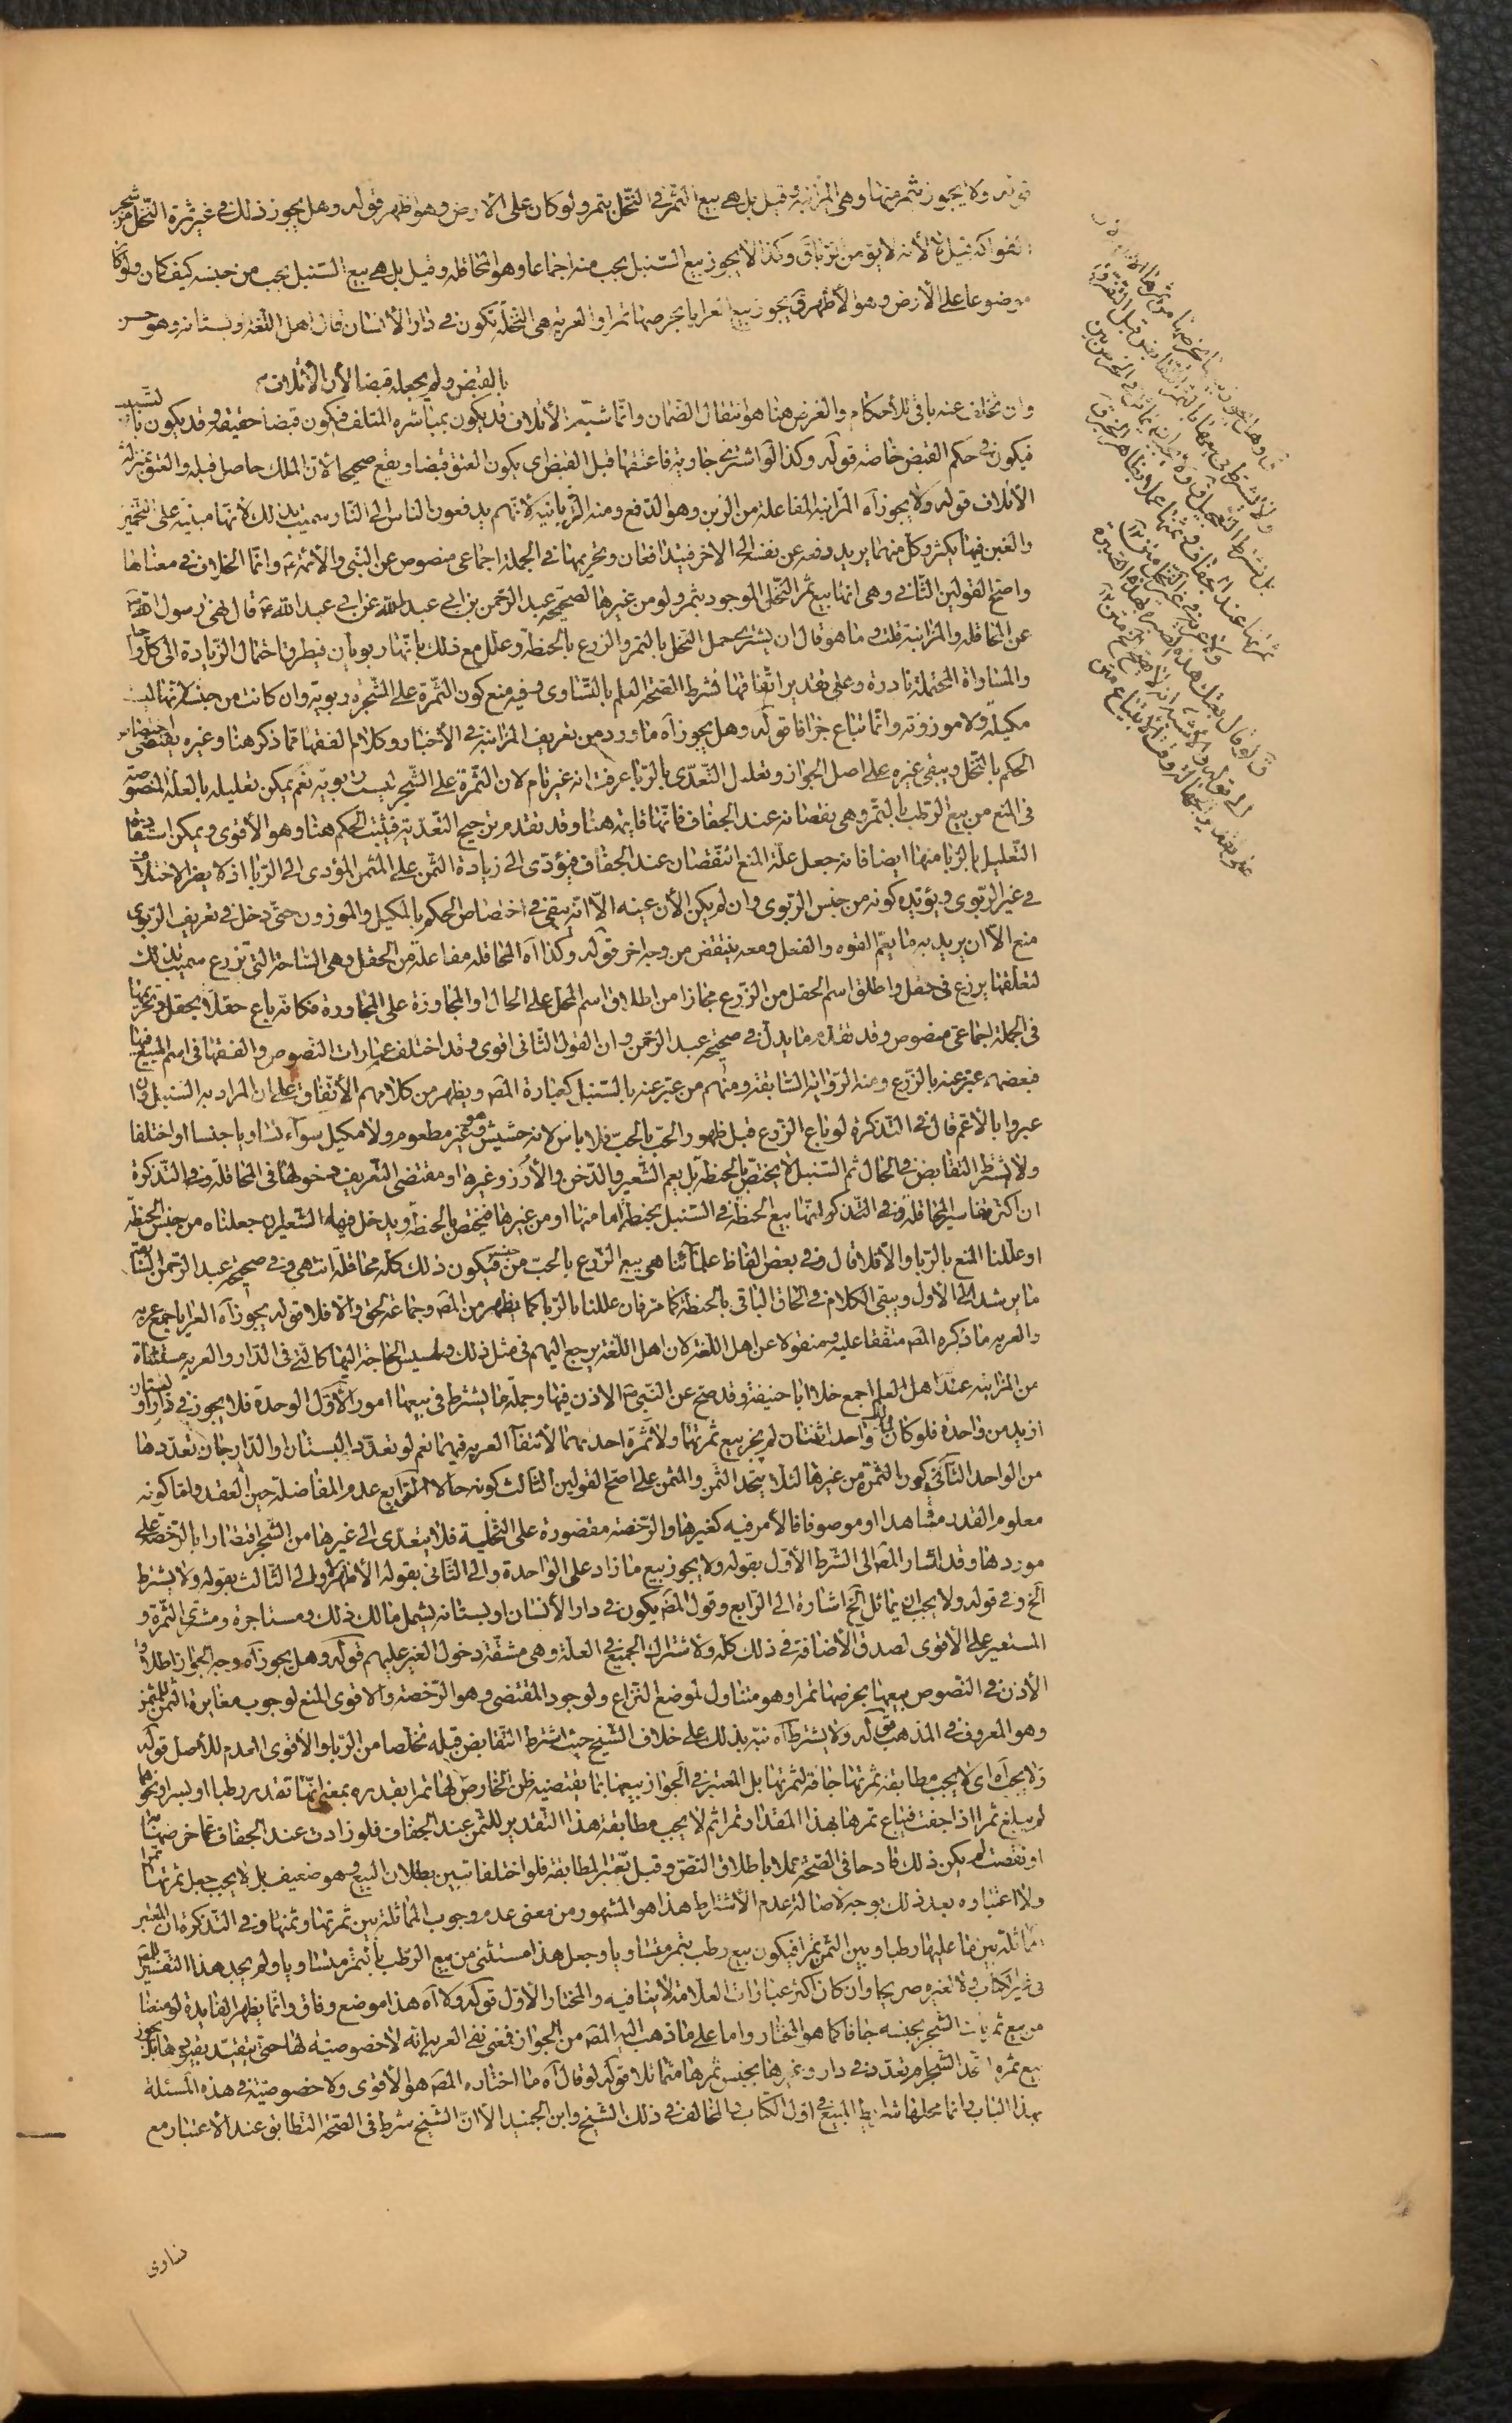 قوله ولا يجوز بثمر منها وهي المزابنة وقيل بل هي بيع الثمر في النخل بتمر ولو كان على الأرض وهو أظهر قوله وهل يجوز ذلك في غير ثمرة النخل من شجر
الفواكه قيل لا لأنه لا يؤمن الربا ق وكذا لا يجوز بيع السنبل بحب منه اجماعا وهو المحاقله وقيل بل هي بيع السنبل بحب من جنسه كيف كان ولو كان
موضوعا على الأرض وهو الأظهر ق يجوز بيع العرايا بخرصها تمرا والعريه هي النخلة تكون في دار الأنسان قال اهل اللغه وبستانه وهو حسن
بالقبض ولم يجعله قبضا لأن الأتلاف
وان تخلف عنه باقي الأحكام والغرض هنا هو انتقال الضمان وانما شبه الأتلاف قد يكون بمباشره المتلف فيكون قبضا حقيقة وقد يكون بالتسبيب
فيكون في حكم القبض خاصه قوله وكذا لو اشترى جاريه فاعتقها قبل القبض اي يكون العتق قبضا ويقع صحيحا لأن الملك حاصل قبله والعتق بمنزلة
الأتلاف قوله ولا يجوز آه المزابنه المفاعلة من الزبن وهو الدفع ومنه الزبانيه لأنهم يدفعون الناس الى النار سميت بذلك لأنها مبنيه على التخمين
والغبن فيها يكثر وكل منهما يريد دفعه عن نفسه الى الاخر فيتدافعان وتحريمها في الجمله اجماعي منصوص عن النبي والأئمه ع وانما الخلاف في معناها
واصح القولين الثاني وهي انها بيع ثمر النخل الموجود بتمر ولو من غيرها لصحيحه عبد الرحمن بن ابي عبد الله عن ابي عبد الله ع قال نهى رسول الله ص
عن المحاقله والمزابنة قلت وما هو قال ان يشترى حمل النخل بالتمر والزرع بالحنطة وعلل مع ذلك بانهما ربويان فيطرقا احتمال الزيادة الى كل واحد
والمساواة المحتملة نادرة وعلى تقدير اتفاقها فشرط الصحه العلم بالتساوى وفيه منع كون الثمرة على الشجره ربويه وان كانت من جنسه لأنها ليست
مكيلة ولا موزونه وانما تباع جزافا قوله وهل يجوز آه ما ورد من تعريف المزابنة في الأخبار وكلام الفقها مما ذكر هنا وغيره يقتضى اختصاص
الحكم بالنخل ويبقى غيره على اصل الجواز وتعليل التعدى بالربا عرفت انه غير تام لان الثمرة على الشجر ليست ربويه نعم يمكن تعليله بالعلة المنصوصة
في المنع من بيع الرطب بالتمر وهي نقصانه عند الجفاف فانها قايمه هنا وقد تقدم ترجيح التعديه فيثبت الحكم هنا وهو الأقوى ويمكن استفاده
التعليل بالربا منها ايضا فانه جعل علة المنع النقصان عند الجفاف فيؤدى الى زيادة الثمن على المثمن المؤدى الى الربا اذ لا يضر الاختلاف
في غير الربوى ويؤيده كونه من جنس الربوى وان لم يكن الأن عينه الا انه يبقى في اختصاص الحكم بالمكيل والموزون حتى دخل في تعريف الربوى
منع الا ان يريد به ما يعم القوه والفعل ومعه ينتقض من وجه اخر قوله وكذا آه المحاقله مفاعلة من الحقل وهي الساحة التي تزرع سميت بذلك
لتعلقها بزرع في حقل واطلق اسم الحقل من الزرع مجازا من اطلاق اسم المحل على الحال او المجاورة على المجاورة فكانه باع حقلا بحقل وتحريمها
في الجملة اجماعي منصوص وقد تقدم ما يدل في صحيحه عبد الرحمن وان القول الثاني اقوى وقد اختلف عبارات النصوص والفقها في اسم المبيع فيها
فبعضهم عبر عنه بالزرع ومنه الروايه السابقه ومنهم من عبر عنه بالسنبل كعبارة المص ويظهر من كلامهم الأتفاق على ان المراد به السنبل وان
عبروا بالأعم قال في التذكرة لو باع الزرع قبل ظهور الحب بالحب فلا باس لانه حشيش وهو غير مطعوم ولا مكيل سواء تساويا جنسا او اختلفا
ولا اشترط التقابض في الحال ثم السنبل لا يختص بالحنطة بل يعم الشعير والدخن والأرز وغيره او مقتضى التعريف دخولها في المحاقلة وفي التذكرة
ان اكثر تفاسير المحاقله وفي التذكره انها بيع الحنطة في السنبل بحنطة اما منها او من غيرها فيختص بالحنطه ويدخل فيهاه الشعير ان جعلناه من جنس الحنطه
او عللنا المنع بالربا والا فلا قال وفي بعض الفاظ علمائنا هي بيع الزرع بالحب من جنسه فيكون ذلك كله محاقلة انتهى وفي صحيحه عبد الرحمن السابقه
ما يرشد الى الأول ويبقى الكلام في الحاق الباقي بالحنطة كما مر فان عللنا بالربا كما يظهر من المص وجماعه لحق والا فلا قوله يجوز آه العرايا جمع عريه
والعريه ما ذكره المص متفقا عليه ومنقولا عن اهل اللغة لان اهل اللغة يرجع اليهم في مثل ذلك ولمسيس الحاجة اليها كالتي في الدار والعريه مستثناة
من المزابنه عند اهل العلم اجمع خلا ابا حنيفة وقد صح عن النبي ص الاذن فيها وجملة ما يشترط في بيعها امور الأول الوحدة فلا يجوز في دار او بستان
ازيد من واحدة فلو كان لمالك واحد اثنتان لم يجز بيع ثمرتهما ولا ثمرة احديهما لانتفآ العريه فيهما نعم لو تعدد البستان او الدار جاز تعددها
من الواحد الثاني كون الثمن من غيرها لئلا يتحد الثمن والمثمن على اصح القولين الثالث كونه حالا الرابع عدم المفاضلة حين العقد واما كونه
معلوم القدر مشاهدا او موصوفا فالأمر فيه كغيرها والرخصه مقصورة على النخلة فلا يتعدى الى غيرها من الشجر اقتصارا بالرخصة على
موردها وقد اشار المص الى الشرط الأول بقوله ولا يجوز بيع ما زاد على الواحدة والى الثانى بقوله الأظهر لا والى الثالث بقوله ولا يشترط
الخ وفي قوله ولا يجب ان يماثل الخ اشارة الى الرابع وقول المص يكون في دار الأنسان او بستانه يشمل مالك ذلك ومستاجره ومشترى الثمرة و
المستعير على الأقوى لصدق الأضافة في ذلك كله ولاشتراك الجميع في العلة وهي مشقة دخول الغير عليهم قوله وهل يجوز آه وجه الجواز اطلاق
الأذن في النصوص ببيعها بخرصها تمرا وهو متناول لموضع النزاع ولوجود المقتضى وهو الرخصه والاقوى المنع لوجوب مغايرة الثمن للمثمن
وهو المعروف في المذهب قوله ولا يشترط آه نبه بذلك على خلاف الشيخ حيث اشترط التقابض قبله تخلصا من الربا والأقوى العدم للأصل قوله
ولا يجب آه اى لا يجب مطابقة ثمرتها جافة لثمرتها بل المعتبر في الجواز بيعها بما يقتضيه ظن الخارص لها تمرا بقدره بمعنى انها تقدر رطبا او بسرا ونحوهما
لم يبلغ تمرا اذا جفت فيباع ثمرها بهذا المقدار تمرا ثم لا يجب مطابقة هذا التقدير للثمن عند الجفاف فلو زادت عند الجفاف عما خرصها به
او نقصت لم يكن ذلك قادحا في الصحة عملا باطلاق النص وقيل تعتبر المطابقة فلو اختلفا تبين بطلان البيع وهو ضعيف بل لا يجب جعل ثمرتها تمرا
ولا اعتباره بعد ذلك بوجه لاصالة عدم الاشتراط هذا هو المشهور من معنى عدم وجوب المماثلة بين ثمرتها وثمنها وفي التذكرة ان المعتبر
المماثلة بين ما عليها رطبا وبين الثمن تمرا فيكون بيع رطب بتمر متساويا وجعل هذا مستثنى من بيع الرطب بالتمر متساويا ولم يجد هذا التفسير لغيره
في غير الكتاب ولا لغيره صريحا وان كان اكثر عبارات العلامة لا ينافيه والمختار الأول قوله ولا آه هذا موضع وفاق وانما يظهر الفايدة لو منعنا
من بيع ثمر باقي الشجر بجنسه جافا كما هو المختار واما على ما ذهب اليه المص من الجواز فمعنى نفي العريه انه لا خصوصيه لها حتى يتقيد بقيودها بل يجوز
بيع ثمره اتحد الشجر ام تعدد في دار وغيرها بجنس ثمرها متماثلا قوله لو قال آه ما اختاره المص هو الأقوى ولا خصوصية في هذه المسئلة
بهذا الباب وانما محلها شرايط البيع في اول الكتاب والمخالف في ذلك الشيخ وابن الجنيد الا ان الشيخ شرط في الصحة التطابق عند الاعتبار مع
تساوى